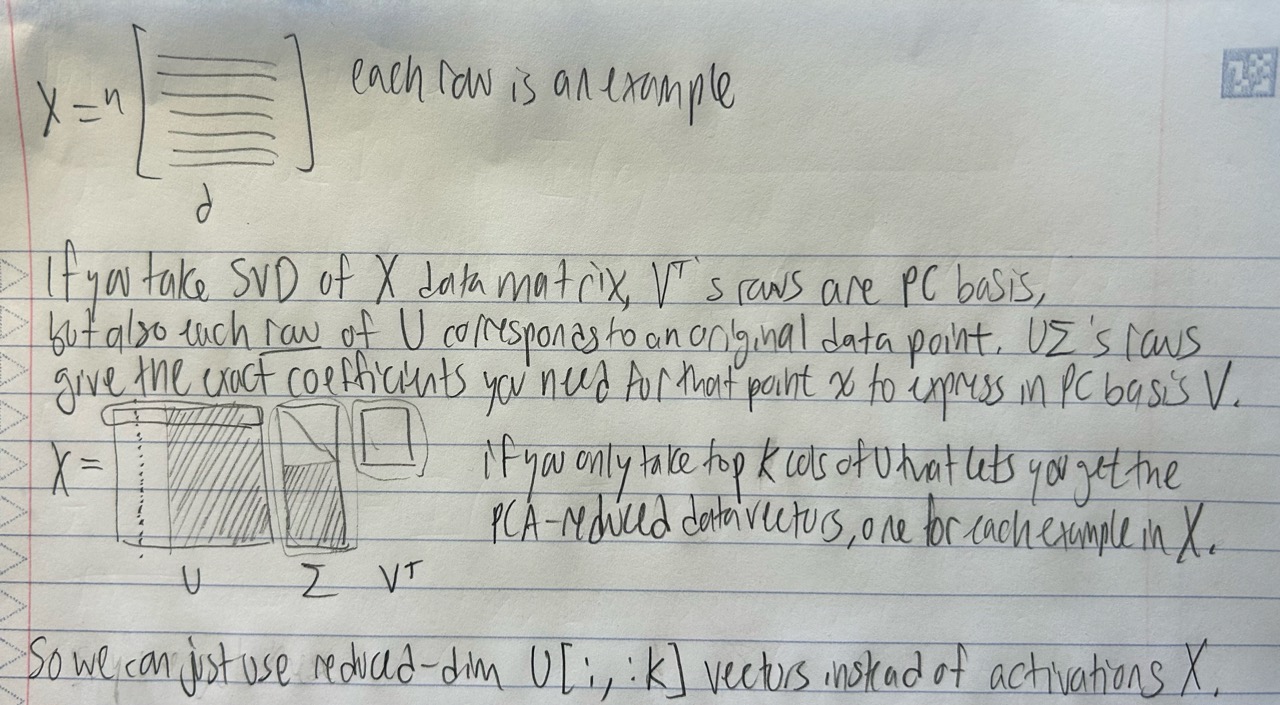 X = n [ ] each row is an example
d
If you take SVD of X data matrix, Vᵀ's rows are PC basis,
but also each row of U corresponds to an original data point. UΣ's rows
give the exact coefficients you need for that point x to express in PC basis V.
X =
if you only take top k cols of U that lets you get the
PCA-reduced data vectors, one for each example in X.
U Σ Vᵀ
So we can just use reduced-dim U[i, :k] vectors instead of activations X.